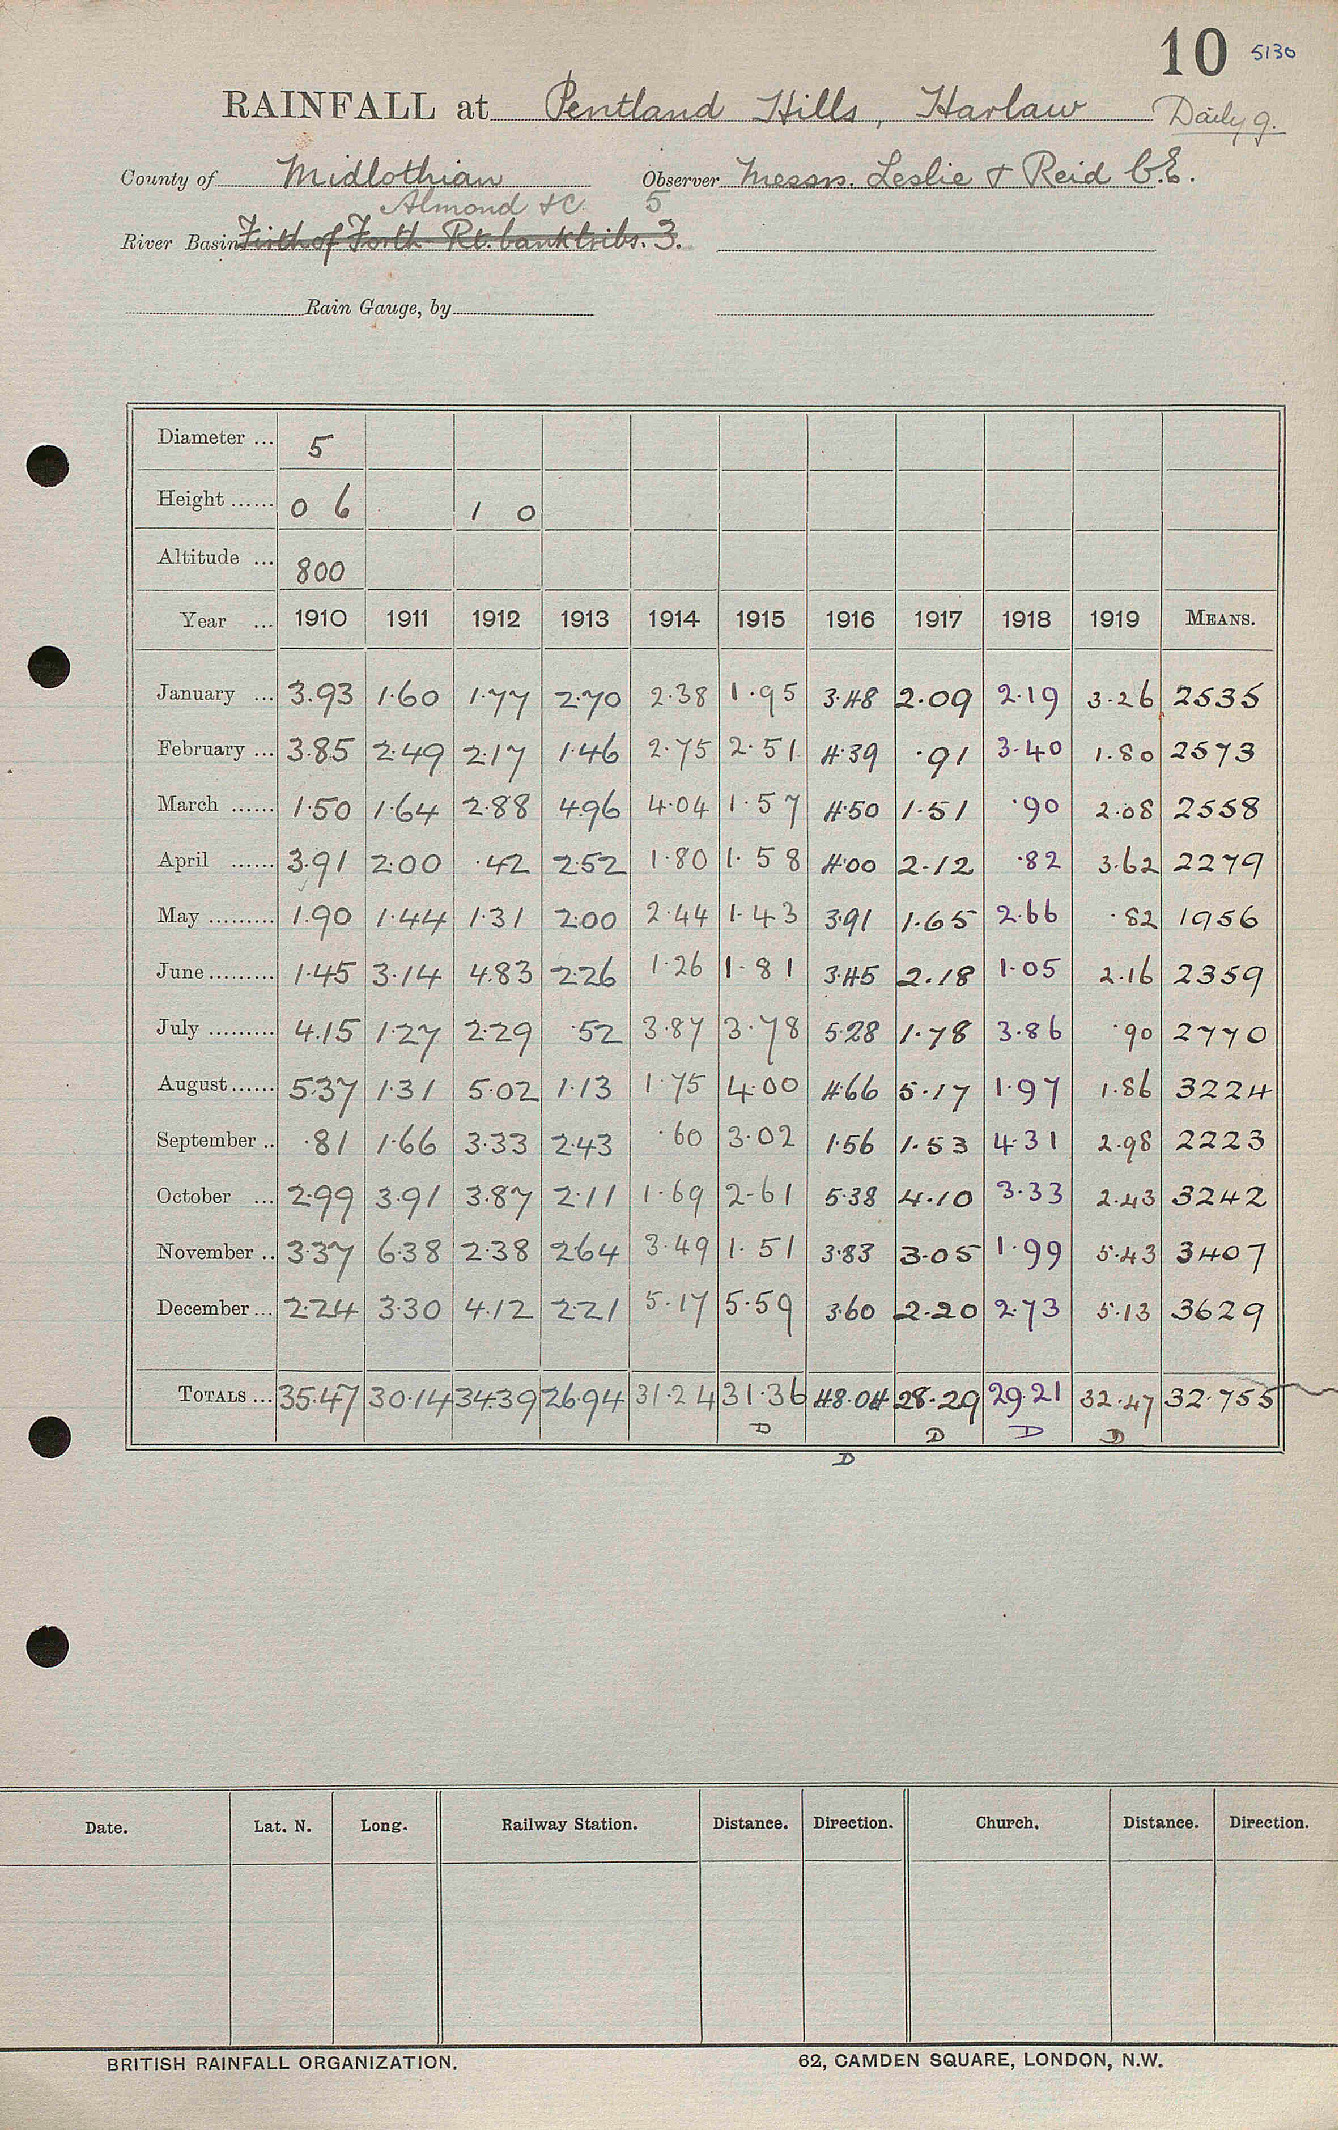 10 5130
RAINFALL at Pentland Hills, Harlaw Daily g.
County of Midlothian Observer Messrs. Leslie & Reid C.E.
Almond &c. 5
River Basin Firth of Forth Rt. bank tribs. 3.
Rain Gauge, by
Diameter ... 5
Height ...... 0 6 1 0
Altitude ... 800
Year ... 1910 1911 1912 1913 1914 1915 1916 1917 1918 1919 MEANS.
January ... 3.93 1.60 1.77 2.70 2.38 1.95 3.48 2.09 2.19 3.26 2535
February ... 3.85 2.49 2.17 1.46 2.75 2.51 4.39 .91 3.40 1.80 2573
March ...... 1.50 1.64 2.88 4.96 4.04 1.57 4.50 1.51 .90 2.08 2558
April ...... 3.91 2.00 .42 2.52 1.80 1.58 4.00 2.12 .82 3.62 2279
May ......... 1.90 1.44 1.31 2.00 2.44 1.43 3.91 1.65 2.66 .82 1956
June ......... 1.45 3.14 4.83 2.26 1.26 1.81 3.45 2.18 1.05 2.16 2359
July ......... 4.15 1.27 2.29 .52 3.87 3.78 5.28 1.78 3.86 .90 2770
August ...... 5.37 1.31 5.02 1.13 1.75 4.00 4.66 5.17 1.97 1.86 3224
September .. .81 1.66 3.33 2.43 .60 3.02 1.56 1.53 4.31 2.98 2223
October ... 2.99 3.91 3.87 2.11 1.69 2.61 5.38 4.10 3.33 2.43 3242
November .. 3.37 6.38 2.38 2.64 3.49 1.51 3.83 3.05 1.99 5.43 3407
December ... 2.24 3.30 4.12 2.21 5.17 5.59 3.60 2.20 2.73 5.13 3629
TOTALS ... 35.47 30.14 34.39 26.94 31.24 31.36 48.04 28.29 29.21 32.47 32.755
D D D D
D
Date. Lat. N. Long. Railway Station. Distance. Direction. Church. Distance. Direction.
BRITISH RAINFALL ORGANIZATION. 62, CAMDEN SQUARE, LONDON, N.W.